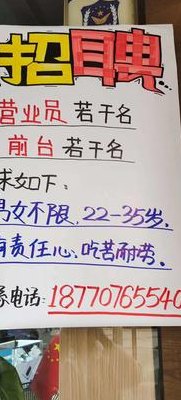 招聘
营业员 若干名
前台 若干名
求如下:
男女不限, 22-35岁.
有责任心、吃苦耐劳.
电话: 18770765540